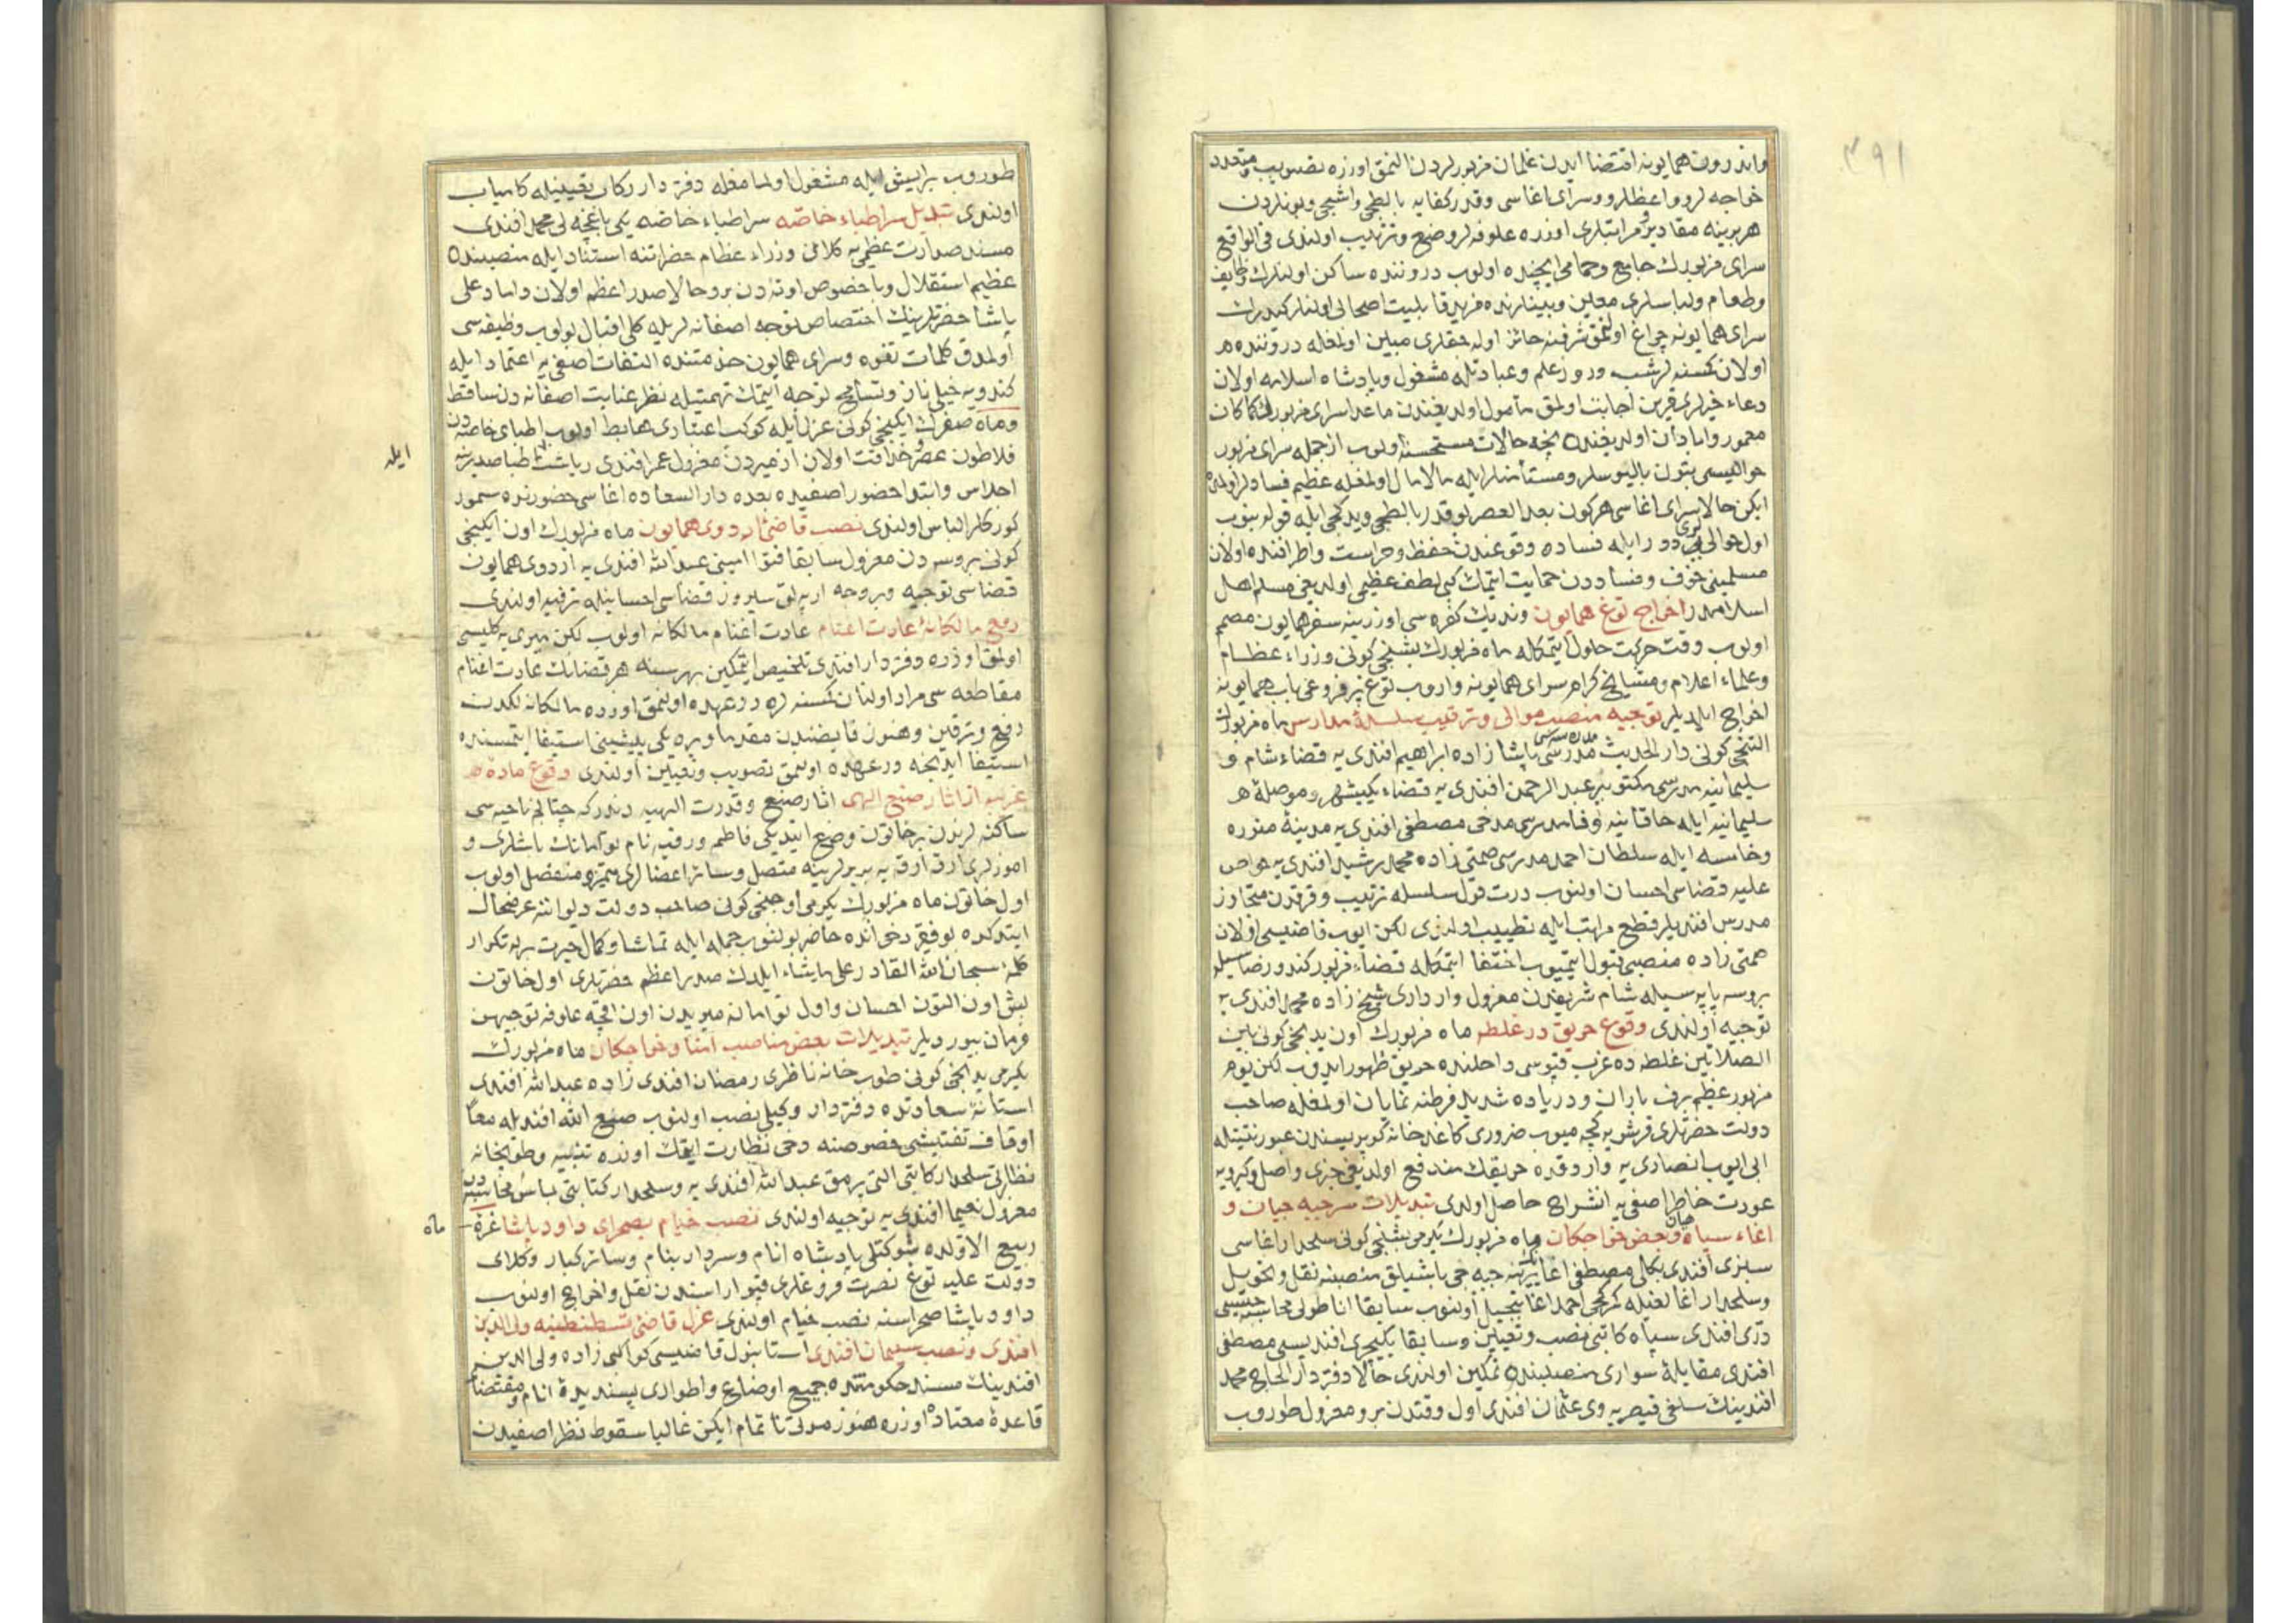 ٣٩١
واندرون همایونه اقتضا ایدن غلمان مزبورلردن النمق اوزره تصویب و متعدد
خواجه لر و واعظلر و سرای اغاسی و قدر کفایه بالطه جی و اشجی و بونلردن
هربرینه مقادیر و مراتبلری اوزره علوفه لر وضع و ترتیب اولندی فی الواقع
سرای مزبورك جامع و حمامی ایچنده اولوب دروننده ساکن اولنلرك وظایف
و طعام ولباسلری معین و بینلرنده مزید قابلیت اصحابی اولنلر کیدرك
سرای همایونه چراغ اولنمق شرفنه حائز اوله جقلری مبین اولمغله دروننده
اولان کسنه لر شب و روز علم و عبادتله مشغول و پادشاه اسلامه اولان
دعاء خیرلری قرین اجابت اولمق مأمول اولدیغندن ماعدا سرای مزبورك کماکان
معمور و ابادان اولدیغنده نیجه حالات مستحسنه اولوب ازجمله سرای مزبور
حوالیسی بتون بالیوسلر و مستأمنلر ایله مالامال اولمغله عظیم فسادلر اولمده
ایکن حالا سرای اغاسی هرکون بعد العصر بو قدر بالطه جی و یدکجی ایله قوله بنوب
اول حوالی یی دور ایله فساده وقوعندن حفظ و حراست و اطرافنده اولان
مسلمینی خوف و فساددن حمایت ایتمك کبی لطف عظیمی اولدیغی مسلم اهل
اسلامدر اخراج توغ همایون وندیك کفره سی اوزرینه سفر همایون مصمم
اولوب وقت حرکت حلول ایتمکله ماه مزبورك بشنجی کونی وزراء عظام
و علماء اعلام و مشایخ کرام سرای همایونه واروب توغ پرفروغی باب همایونه
اخراج ایلدیلر توجیه منصب موالی و ترتیب سلسلهٔ مدارس ماه مزبورك
التنجی کونی دار الحدیث مدرسی پاشا زاده ابراهیم افندی یه قضاء شام و
سلیمانیه مدرسی مکتوبی عبد الرحمن افندی یه قضاء یکیشهر و موصلهٔ
سلیمانیه ایله خاقانیه وفا مدرسی مدحی مصطفی افندی یه مدینهٔ منوره
و خامسه ایله سلطان احمد مدرسی همتی زاده محمد رشید افندی یه خواص
علیه قضاسی احسان اولنوب درت قول سلسله ترتیب و قرقدن متجاوز
مدرس افندیلر قطع مراتب ایله تطییب اولندی لکن ایوب قاضیسی اولان
همتی زاده منصبی قبول ایتمیوب اختفا ایتمکله قضاء مزبور کندو رضاسیله
بروسه پایه سیله شام شریفدن معزول وارداری شیخ زاده محمد افندی یه
توجیه اولندی وقوع حریق در غلطه ماه مزبورك اون یدنجی کونی بین
الصلاتین غلطه ده عزب قپوسی داخلنده حریق ظهور ایدوب لکن یوم
مزبور عظیم برف باران و دریاده شدید فرطنه نمایان اولمغله صاحب
دولت حضرتلری قرشویه کچه میوب ضروری کاغدخانه کوپریسندن عبور نیتیله
ابی ایوب انصاری یه واردقده حریقك مندفع اولدیغی خبری واصل و کیرویه
عودت خاطر اصفی یه انشراح حاصل اولدی تبدیلات سرجبه جیان و
اغاء سپاهیان و بعض خواجکان ماه مزبورك یکرمی بشنجی کونی سلحدار اغاسی
سبزی افندی بکالی مصطفی اغا یرینه جبه جی باشیلق منصبنه نقل و تحویل
و سلحدار اغالغیله کرکجی احمد اغا تبجیل اولنوب سابقا اناطولی محاسبه جیسی
درّی افندی سپاه کاتبی نصب و تعیین و سابقا یکیچری افندیسی مصطفی
افندی مقابلهٔ سواری منصبنده تمکین اولندی حالا دفتردار الحاج محمد
افندینك سلفی قیصریه وی عثمان افندی اول وقتدن برو معزول طوروب
طوروب برایش ایله مشغول اولمامغله دفتردار رکاب تعیینیله کامیاب
اولندی تبدیل سراطباء خاصّه سراطباء خاصّه یکی باغچه لی محمد افندی
مسند صدارت عظمی یه کلان وزراء عظام حضراتنه استناد ایله منصبنده
عظیم استقلال و باخصوص اوته دن برو حالا صدر اعظم اولان داماد علی
پاشا حضرتلرینك اختصاص توجه اصفانه لریله کلی اقبال بولوب وظیفه سی
اولمدق کلمات تفوه و سرای همایون خدمتنده التفات اصفی یه اعتماد ایله
کندویه خیلی ناز و تسامح توجه ایتمك تهمتیله نظر عنایت اصفانه دن ساقط
و ماه صفرك ایکنجی کونی عزل ایله کوکب اعتباری هابط اولوب اطبای خاصّه دن
فلاطون عصر و حذاقت اولان ازمیردن معزول عمر افندی ریاست اطبا صدرینه
ایله
اجلاس و ابتدا حضور اصفیده بعده دار السعاده اغاسی حضورنده سمور
کورکلر الباس اولندی نصب قاضئ اردوی همایون ماه مزبورك اون ایکنجی
کونی بروسه دن معزول سابقا فتوا امینی عبد الله افندی یه اردوی همایون
قضاسی توجیه و بر وجه ارپه لق سیروز قضاسی احسانیله ترفیه اولندی
رفع مالکانهٔ عادت اغنام عادت اغنام مالکانه اولوب لکن میری یه کلیسی
اولمق اوزره دفتردار افندی تلخیص ایتمکین بهر سنه هر قضانك عادت اغنام
مقاطعه سی مراد اولنان کسنه لره در عهده اولنمق اوزره مالکانه لکدن
رفع و ترقین و هنوز قایضندن مقدما ویره کلدیکی پیشینی استیفا ایتمسنده
استیفا ایدنجه در عهده اولنمق تصویب و تعیین اولندی وقوع مادهٔ
غریبه از اثار صنع الهی اثار صنع و قدرت الهیه دندر که چتالجه ناحیه سی
ساکنه لرندن بر خاتون وضع ایتدیکی فاطمه و رقیه نام توأمانك باشلری و
اموزلری ارقه ارقه یه بربرلرینه متصل و سائر اعضالری متمیز و منفصل اولوب
اول خاتون ماه مزبورك یکرمی اوچنجی کونی صاحب دولت دیواننه عرضحال
ایتدکده بو فقیر دخی انده حاضر بولنوب جمله ایله تماشا و کمال حیرت ایله تکرار
کلمهٔ سبحان الله القادر علی مایشاء ایلدك صدر اعظم حضرتلری اول خاتون
بش اون التون احسان و اول توأمانه میریدن اون اقچه علوفه توجیهن
فرمان بیوردیلر تبدیلات بعض مناصب امنا و خواجکان ماه مزبورك
یکرمی یدنجی کونی طوبخانه ناظری رمضان افندی زاده عبد الله افندی
استانهٔ سعادتده دفتردار وکیلی نصب اولنوب صنع الله افندیله معا
اوقاف تفتیشی خصوصنه دخی نظارت ایتمك اوزره تنبیه و طوبخانه
نظارتی سلحدار کاتبی التی پرمق عبد الله افندی یه و سلحدار کتابتی باش محاسبه دن
معزول نعیما افندی یه توجیه اولندی نصب خیام بصحرای داود پاشا غرهٔ
ماه
ربیع الاولده شوکتلی پادشاه انام و سردار بنام و سائر کبار وکلای
دولت علیه توغ نصرت فروغلری قپو اراسندن نقل و اخراج اولنوب
داود پاشا صحراسنه نصب خیام اولندی عزل قاضئ قسطنطنیه ولی الدین
افندی و نصب سلیمان افندی استانبول قاضیسی کواکبی زاده ولی الدین
افندینك مسند حکومتده جمیع اوضاع و اطواری پسندیدهٔ انام و مقتضای
قاعدهٔ معتاده اوزره هنوز مدتی ناتمام ایکن غالبا سقوط نظر اصفیدن